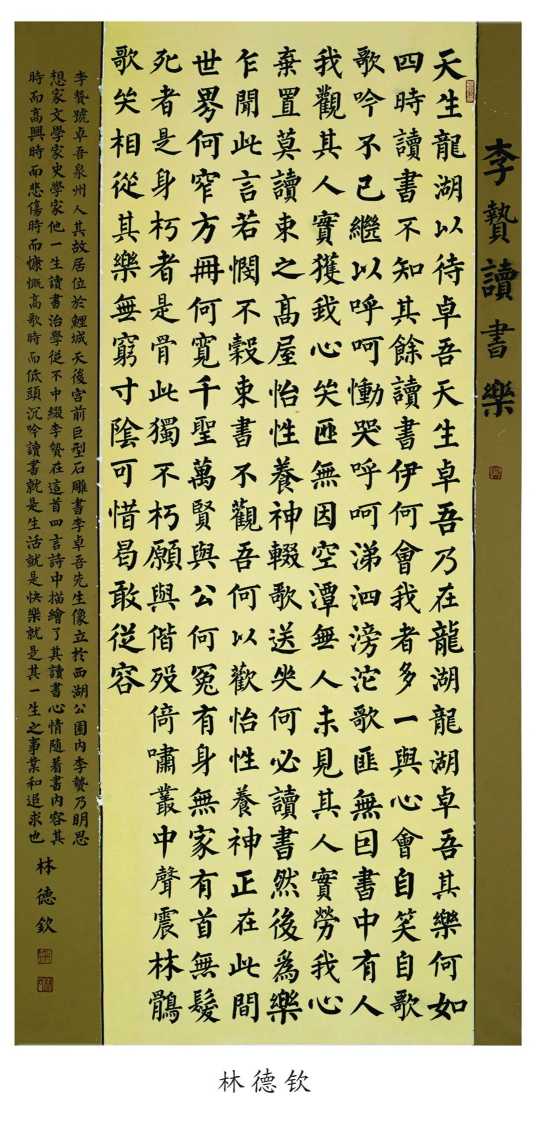 李贄讀書樂
天生龍湖以待卓吾天生卓吾乃在龍湖龍湖卓吾其樂何如
四時讀書不知其餘讀書伊何會我者多一與心會自笑自歌
歌吟不已繼以呼呵慟哭呼呵涕泗滂沱歌匪無囙書中有人
我觀其人實獲我心哭匪無因空潭無人未見其人實勞我心
棄置莫讀束之高屋怡性養神輟歌送哭何必讀書然後爲樂
乍聞此言若憫不穀束書不觀吾何以歡怡性養神正在此間
世界何窄方冊何寬千聖萬賢與公何冤有身無家有首無髮
死者是身朽者是骨此獨不朽願與偕歿倚嘯叢中聲震林鶻
歌哭相從其樂無窮寸陰可惜曷敢從容
李贄號卓吾泉州人其故居位於鯉城天後宮前巨型石雕書李卓吾先生像立於西湖公園内李贄乃明思
想家文學家史學家他一生讀書治學從不中綴李贄在這首四言詩中描繪了其讀書心情隨着書内容其
時而高興時而悲傷時而慷慨高歌時而低頭沉吟讀書就是生活就是快樂就是其一生之事業和追求也
林德欽
林德钦